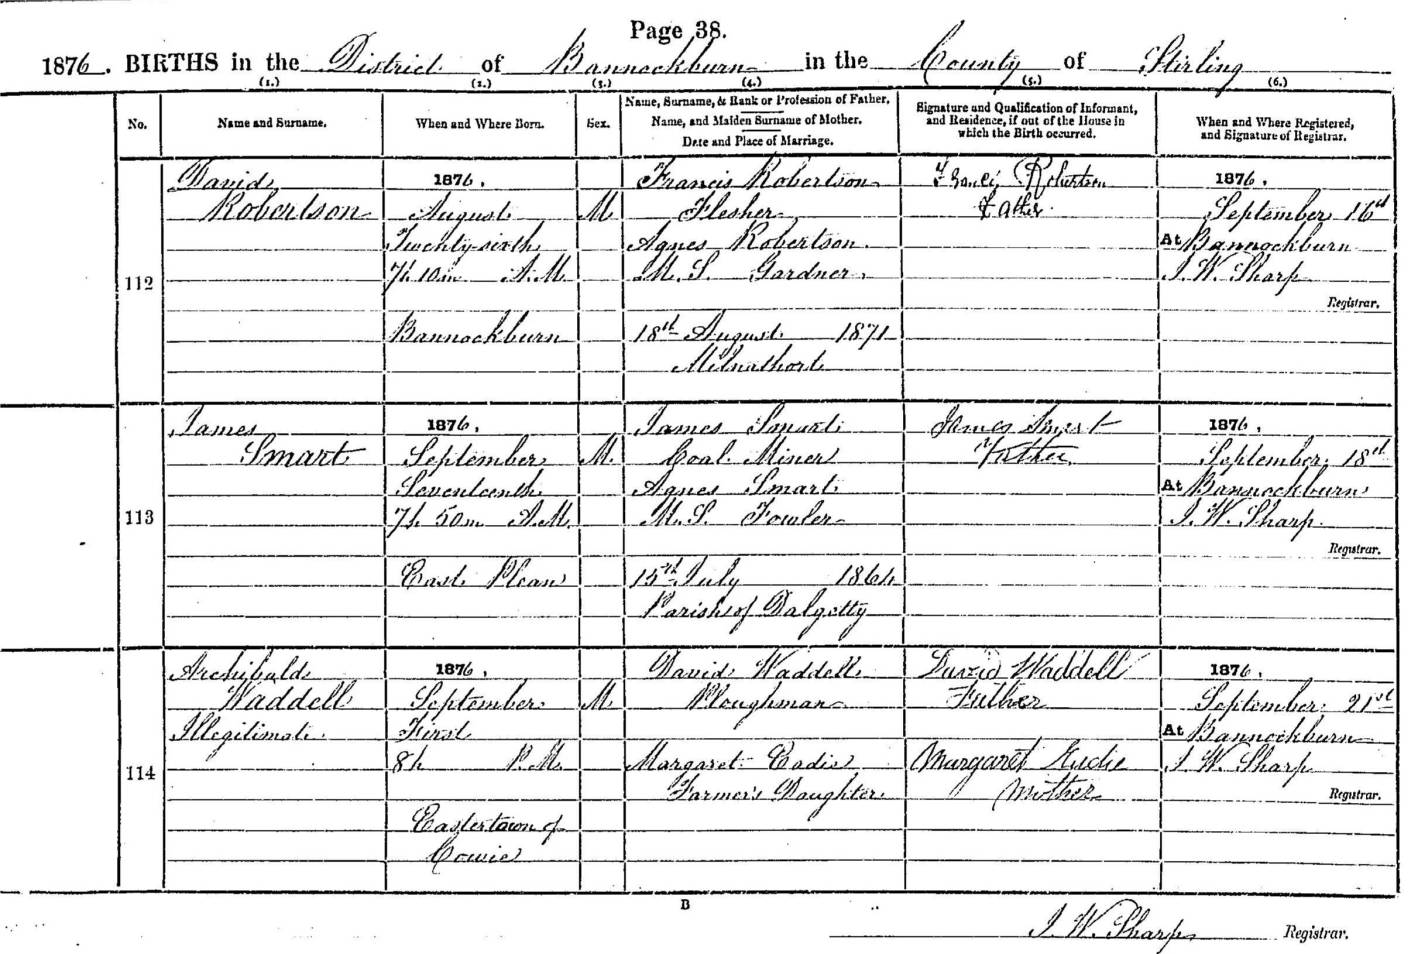 Page 38.
1876. BIRTHS in the District of Bannockburn in the County of Stirling
(1.) (2.) (3.) (4.) (5.) (6.)
No.
Name and Surname.
When and Where Born.
Sex.
Name, Surname, & Rank or Profession of Father.
Name, and Maiden Surname of Mother.
Date and Place of Marriage.
Signature and Qualification of Informant,
and Residence, if out of the House in
which the Birth occurred.
When and Where Registered,
and Signature of Registrar.
112
David
Robertson
1876.
August
Twenty-sixth
7h. 10m A.M.
Bannockburn
M.
Francis Robertson
Flesher
Agnes Robertson
M.S. Gardner
18th August 1871
Milnathort
Francis Robertson
Father
1876.
September 16th
At Bannockburn
J. W. Sharp
Registrar.
113
James
Smart
1876.
September
Seventeenth
7h. 50m A.M.
East Plean
M.
James Smart
Coal Miner
Agnes Smart
M.S. Fowler
15th July 1864
Parish of Dalgetty
James Smart
Father
1876.
September 18th
At Bannockburn
J. W. Sharp
Registrar.
114
Archibald
Waddell
Illegitimate
1876.
September
First
8h P.M.
Eastertown of
Cowie
M.
David Waddell
Ploughman
Margaret Eadie
Farmer's Daughter
David Waddell
Father
Margaret Eadie
Mother
1876.
September 21st
At Bannockburn
J. W. Sharp
Registrar.
B
J. W. Sharp Registrar.